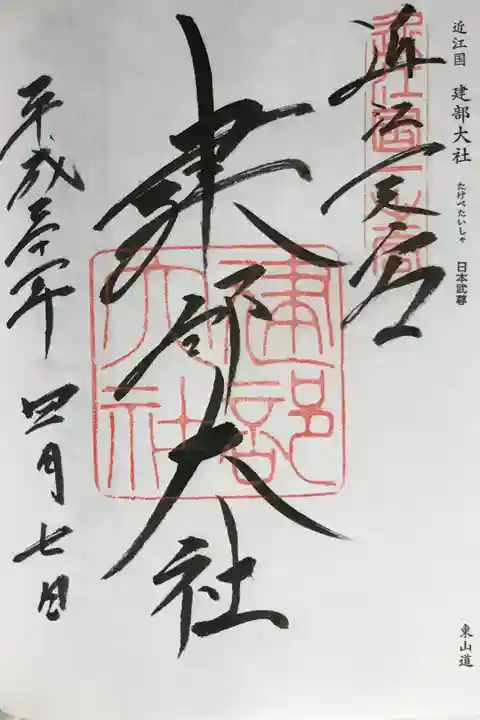 近江国 建部大社 たけべたいしゃ 日本武尊 東山道
近江一之宮
建部大社
平成三十年四月七日
建部大社